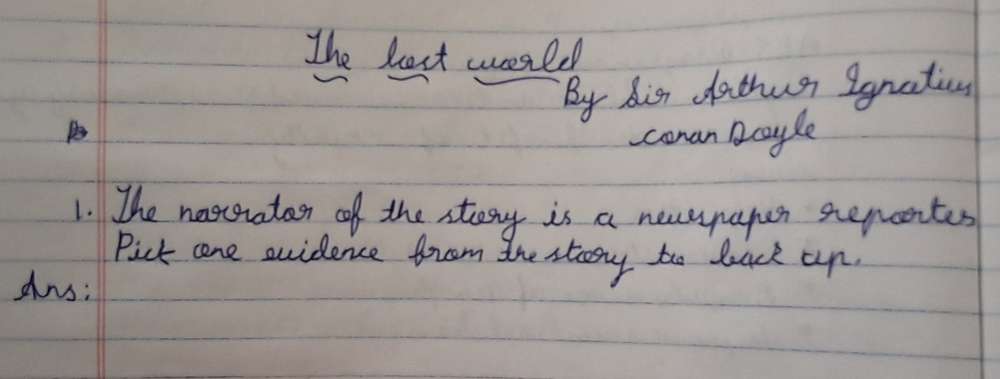 The lost world
By Sir Arthur Ignatius
Conan Doyle
1. The narrator of the story is a newspaper reporter
Pick one evidence from the story to back up.
Ans: